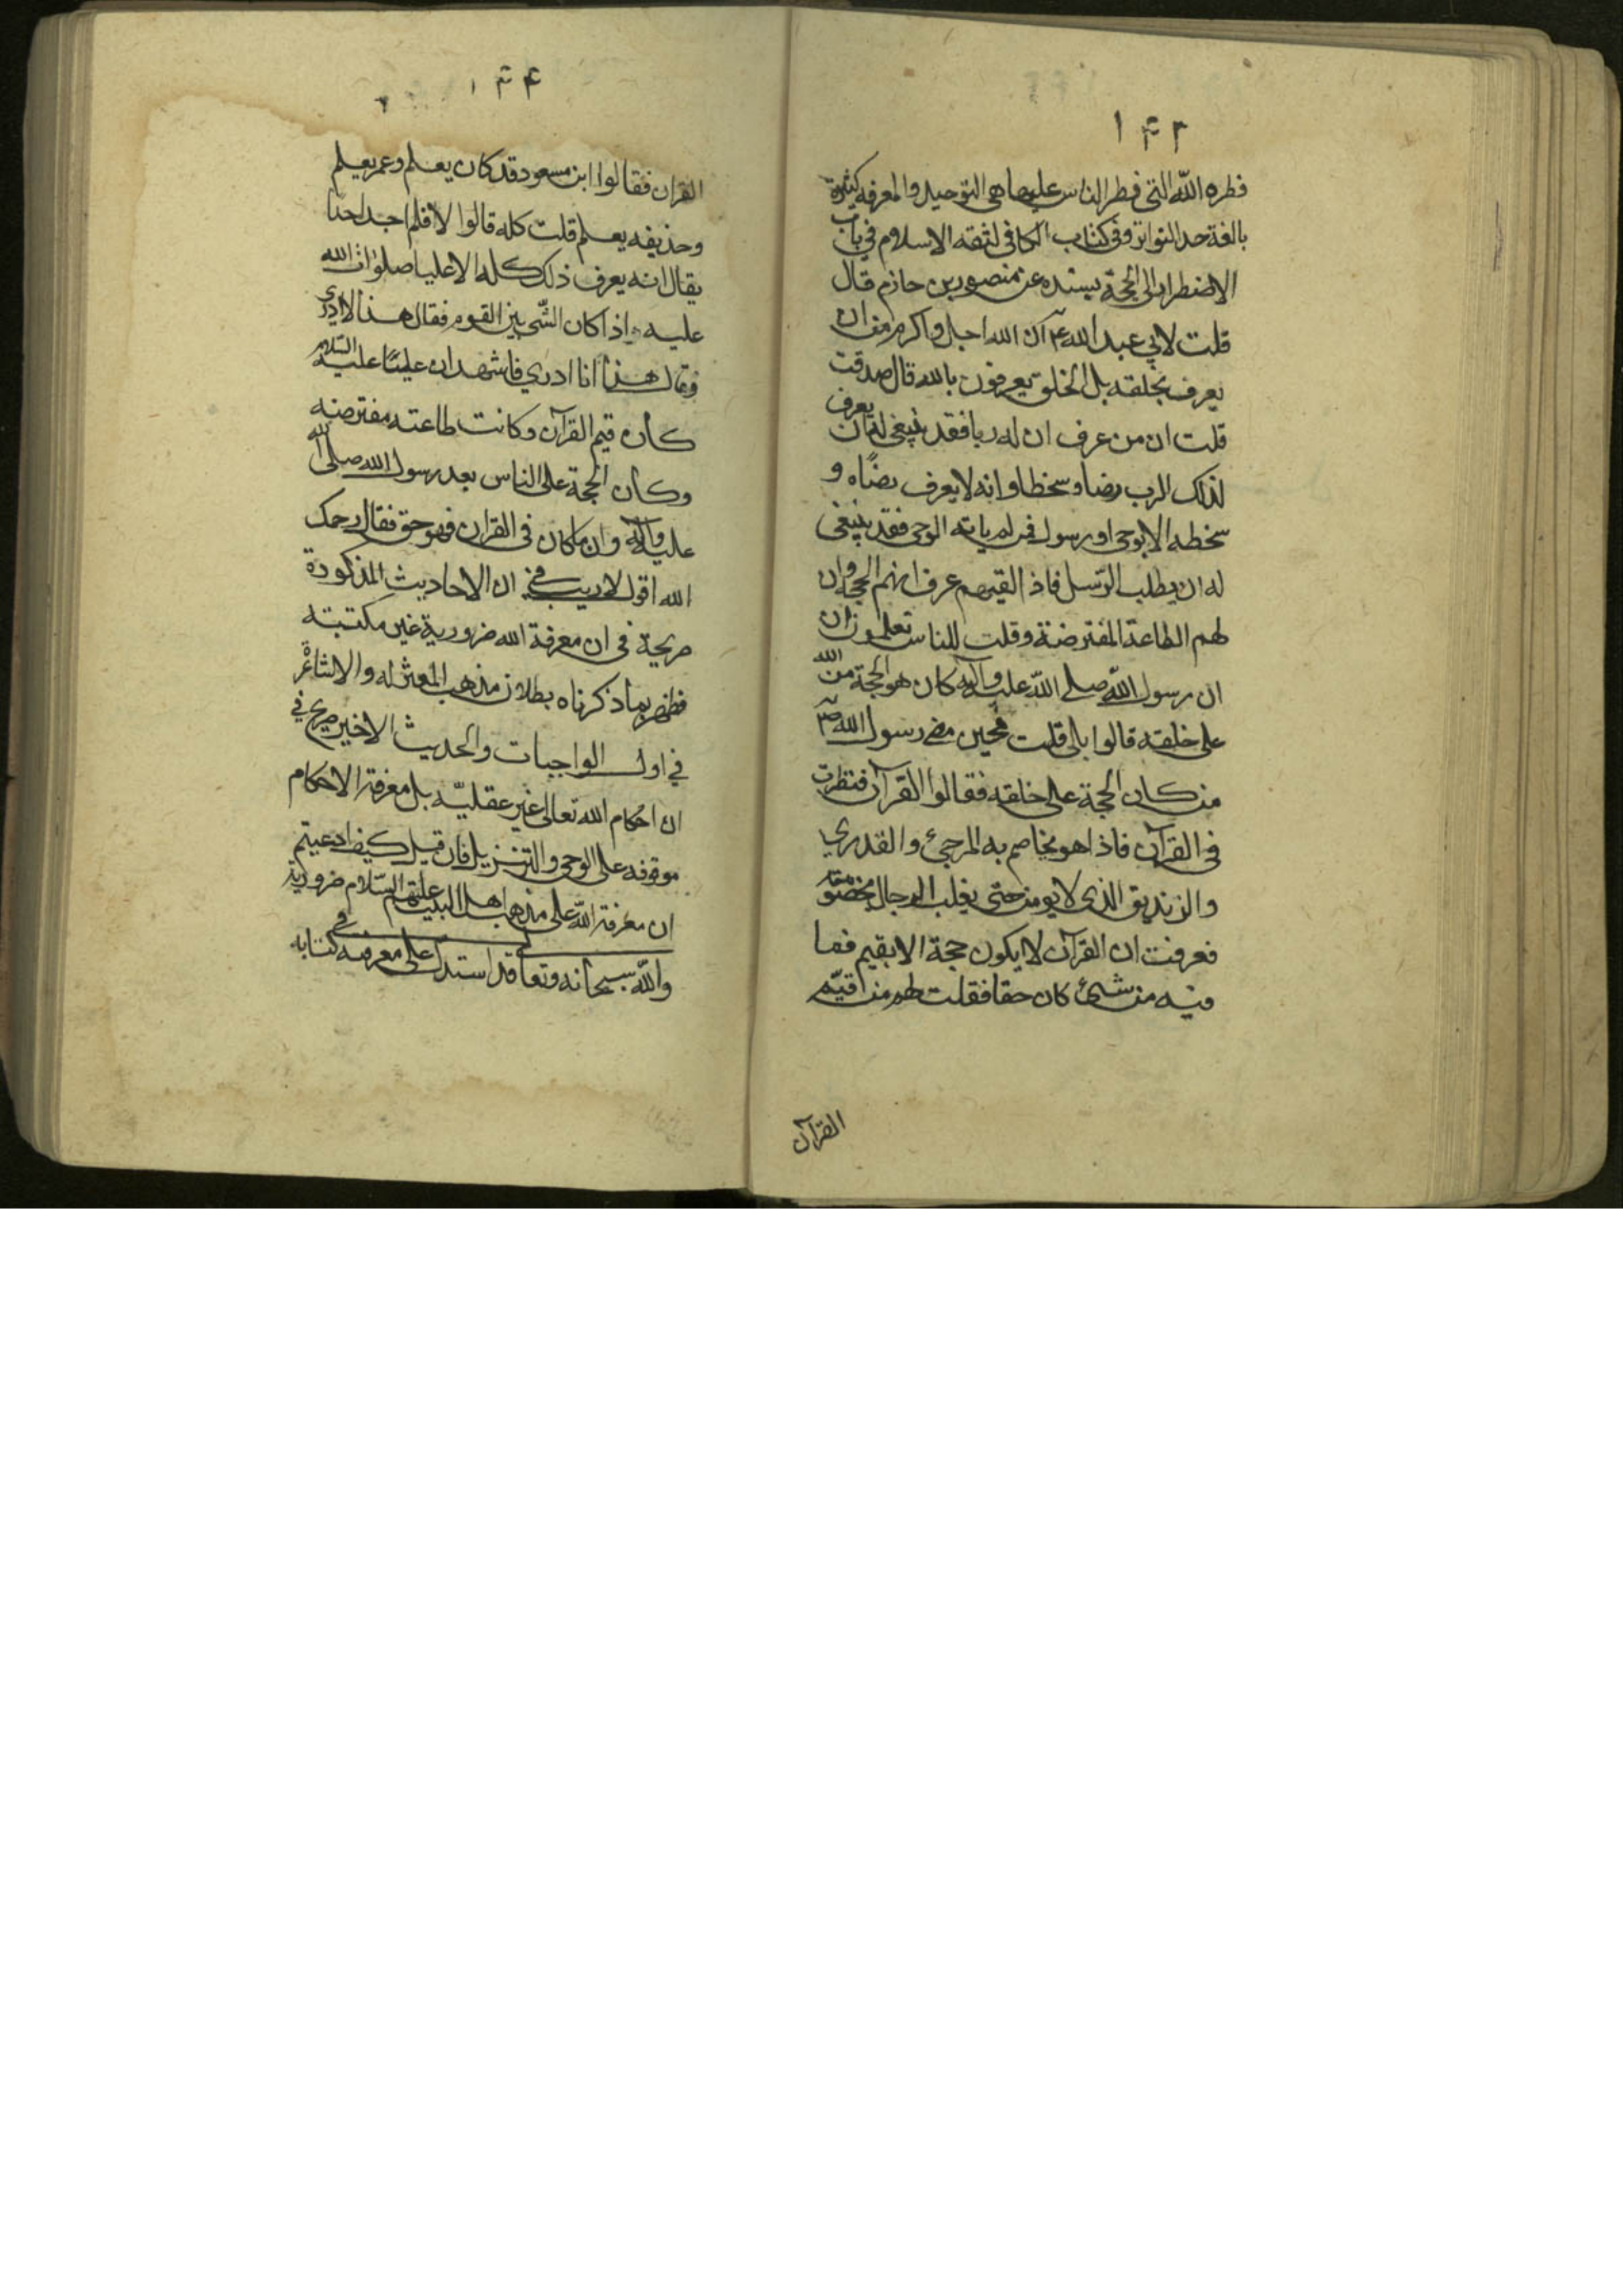 ۱۴۲
فطره الله التى فطر الناس عليها هى التوحيد والمعرفه كثيرة
بالغة حد التواتر وفى كتاب الكافى لثقه الاسلام فى باب
الاضطرار الى الحجة بسنده عن منصور بن حازم قال
قلت لابي عبد الله ع ان الله اجل واكرم من ان
يعرف بخلقه بل الخلق يعرفون بالله قال صدقت
قلت ان من عرف ان له ربا فقد ينبغى له ان يعرف
لذلك الرب رضا وسخطا وانه لا يعرف رضاه و
سخطه الا بوحى او رسول فمن لم ياته الوحى فقد ينبغى
له ان يطلب الرسل فاذا لقيهم عرف انهم الحجة وان
لهم الطاعة المفترضة وقلت للناس تعلمون ان
ان رسول الله صلى الله عليه وآله كان هو الحجة من الله
على خلقه قالوا بلى قلت فحين مضى رسول الله ص
من كان الحجة على خلقه فقالوا القرآن فنظرت
فى القرآن فاذا هو يخاصم به المرجئ والقدري
والزنديق الذى لا يومن حتى يغلب الرجال بخصومته
فعرفت ان القرآن لا يكون حجة الا بقيم فما
فيه من شئ كان حقا فقلت لهم من قيّم
القرآن
القران فقالوا ابن مسعود قد كان يعلم وعمر يعلم
وحذيفه يعلم قلت كله قالوا لا فلم اجد احدا
يقال انه يعرف ذلك كله الا عليا صلوات الله
عليه واذا كان الشئ بين القوم فقال هذا لا ادري
وقال هذا انا ادري فاشهد ان عليا عليه السلام
كان قيم القرآن وكانت طاعته مفترضه
وكان الحجة على الناس بعد رسول الله صلى الله
عليه وآله وان ما كان فى القران فهو حق فقال رحمك
الله اقول لا ريب في ان الاحاديث المذكورة
صريحة فى ان معرفة الله ضرورية غير مكتسبة
فظهر بما ذكرناه بطلان مذهب المعتزله والاشاعرة
في اول الواجبات والحديث الاخير صريح في
ان احكام الله تعالى غير عقليّه بل معرفة الاحكام
موقوفه على الوحى والتنزيل فان قيل كيف ادعيتم
ان معرفة الله على مذهب اهل البيت عليهم السلام ضرورية
والله سبحانه وتعالى قد استدل على معرفته في كتابه